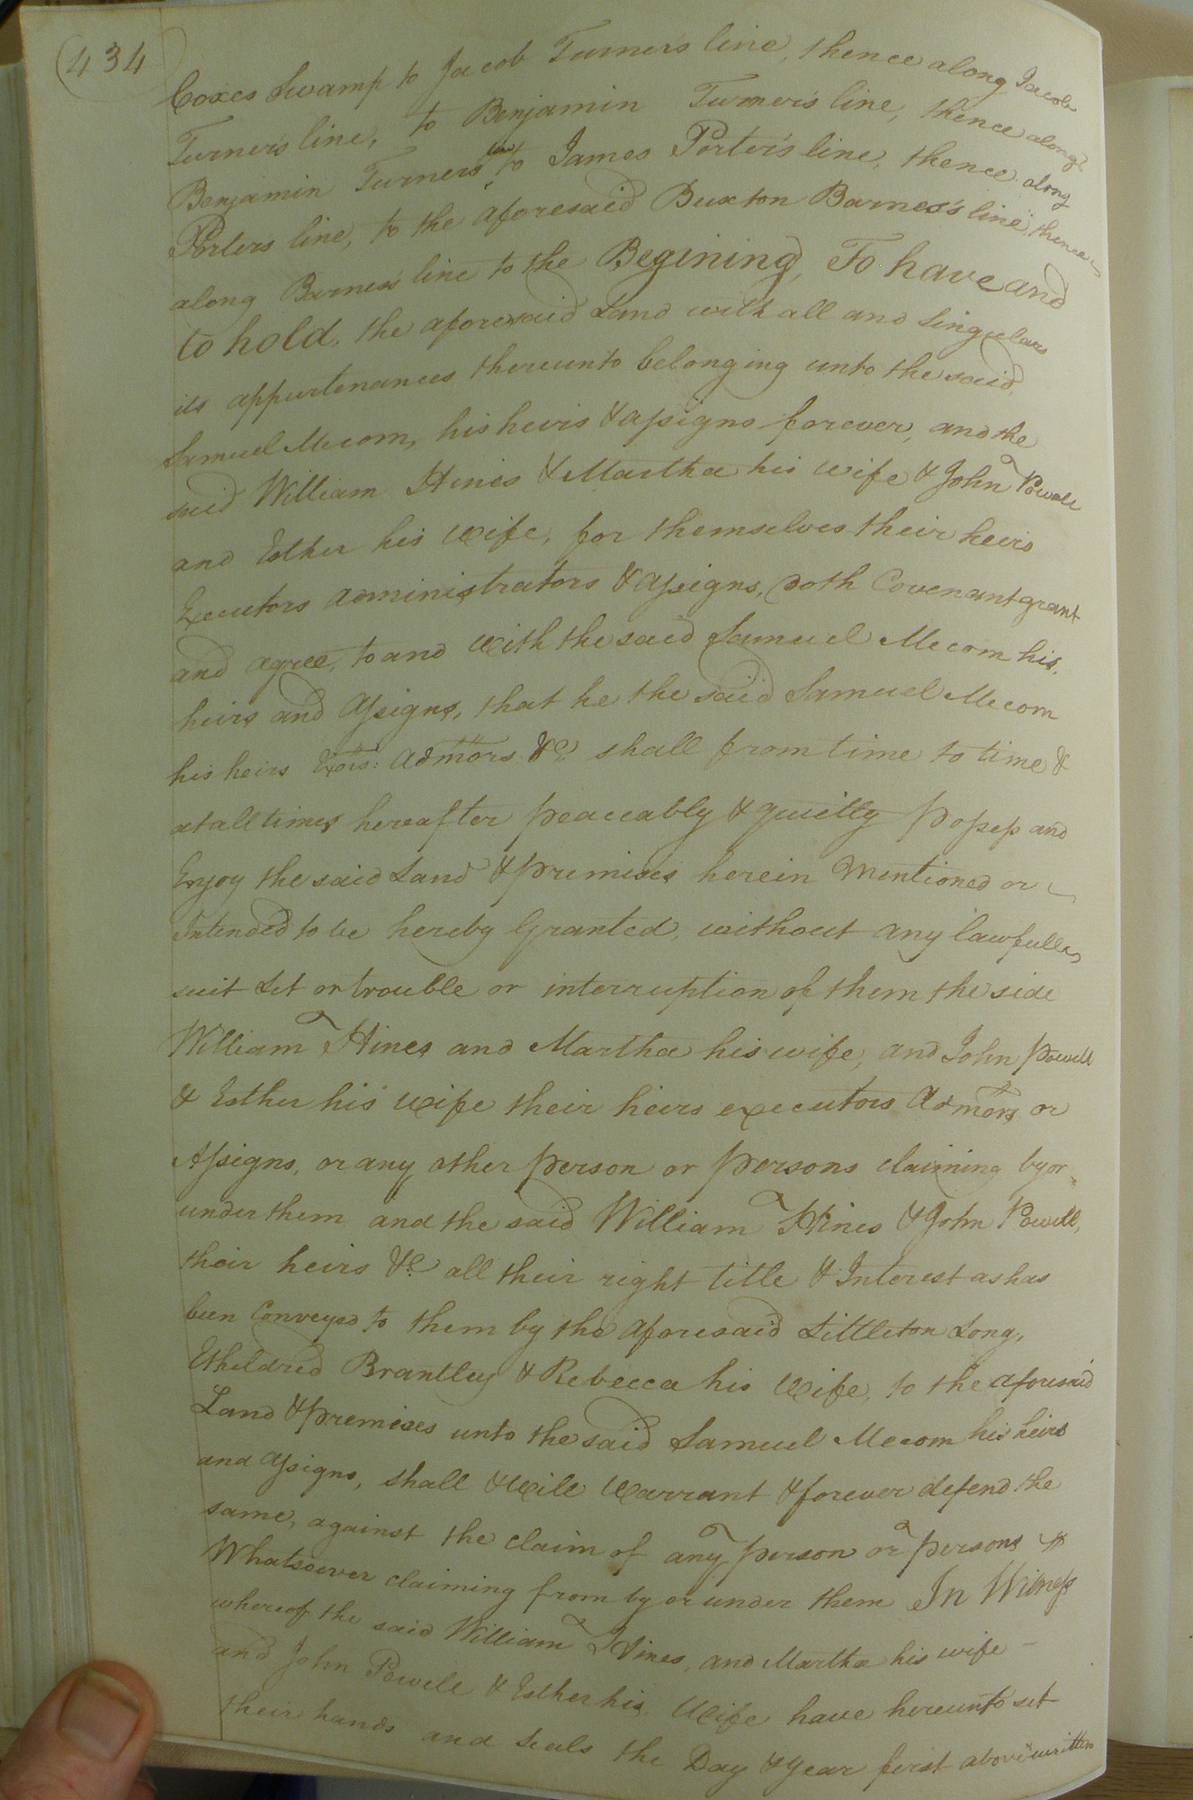 434
Coxes Swamp to Jacob Turner's line, thence along Jacob
Turner's line, to Benjamin Turner's line, thence along
Benjamin Turners line to James Porter's line, thence along
Porters line, to the aforesaid Buxton Barnes's line, thence
along Barnes's line to the Begining, To have and
to hold, the aforesaid Land with all and Singulars
its appurtenances thereunto belonging unto the said
Samuel Mecom, his heirs & assigns forever, and the
said William Hines & Martha his wife & John Powell
and Esther his Wife, for themselves their heirs
Executors administrators & assigns, doth Covenant grant
and agree, to and with the said Samuel Mecom his
heirs and assigns, that he the said Samuel Mecom
his heirs Exors: admors &c. shall from time to time &
at all times hereafter peaceably & quietly possess and
Enjoy the said Land & premises herein mentioned or
Intended to be hereby Granted, without any lawfull
suit Let or trouble or interruption of them the side
William Hines and Martha his wife, and John powell
& Esther his wife their heirs executors admors or
Assigns, or any other person or persons claiming by or
under them and the said William Hines & John Powell,
their heirs &c. all their right title & Interest as has
been Conveyed to them by the aforesaid Littleton Long,
Etheldred Brantley & Rebecca his Wife, to the aforesaid
Land & premises unto the said Samuel Mecom his heirs
and assigns, shall & will Warrant & forever defend the
same, against the claim of any person or persons
Whatsoever claiming from by or under them In Witness
whereof the said William Hines, and Martha his wife
and John Powell & Esther his Wife have hereunto set
their hands and seals the Day & Year first above written